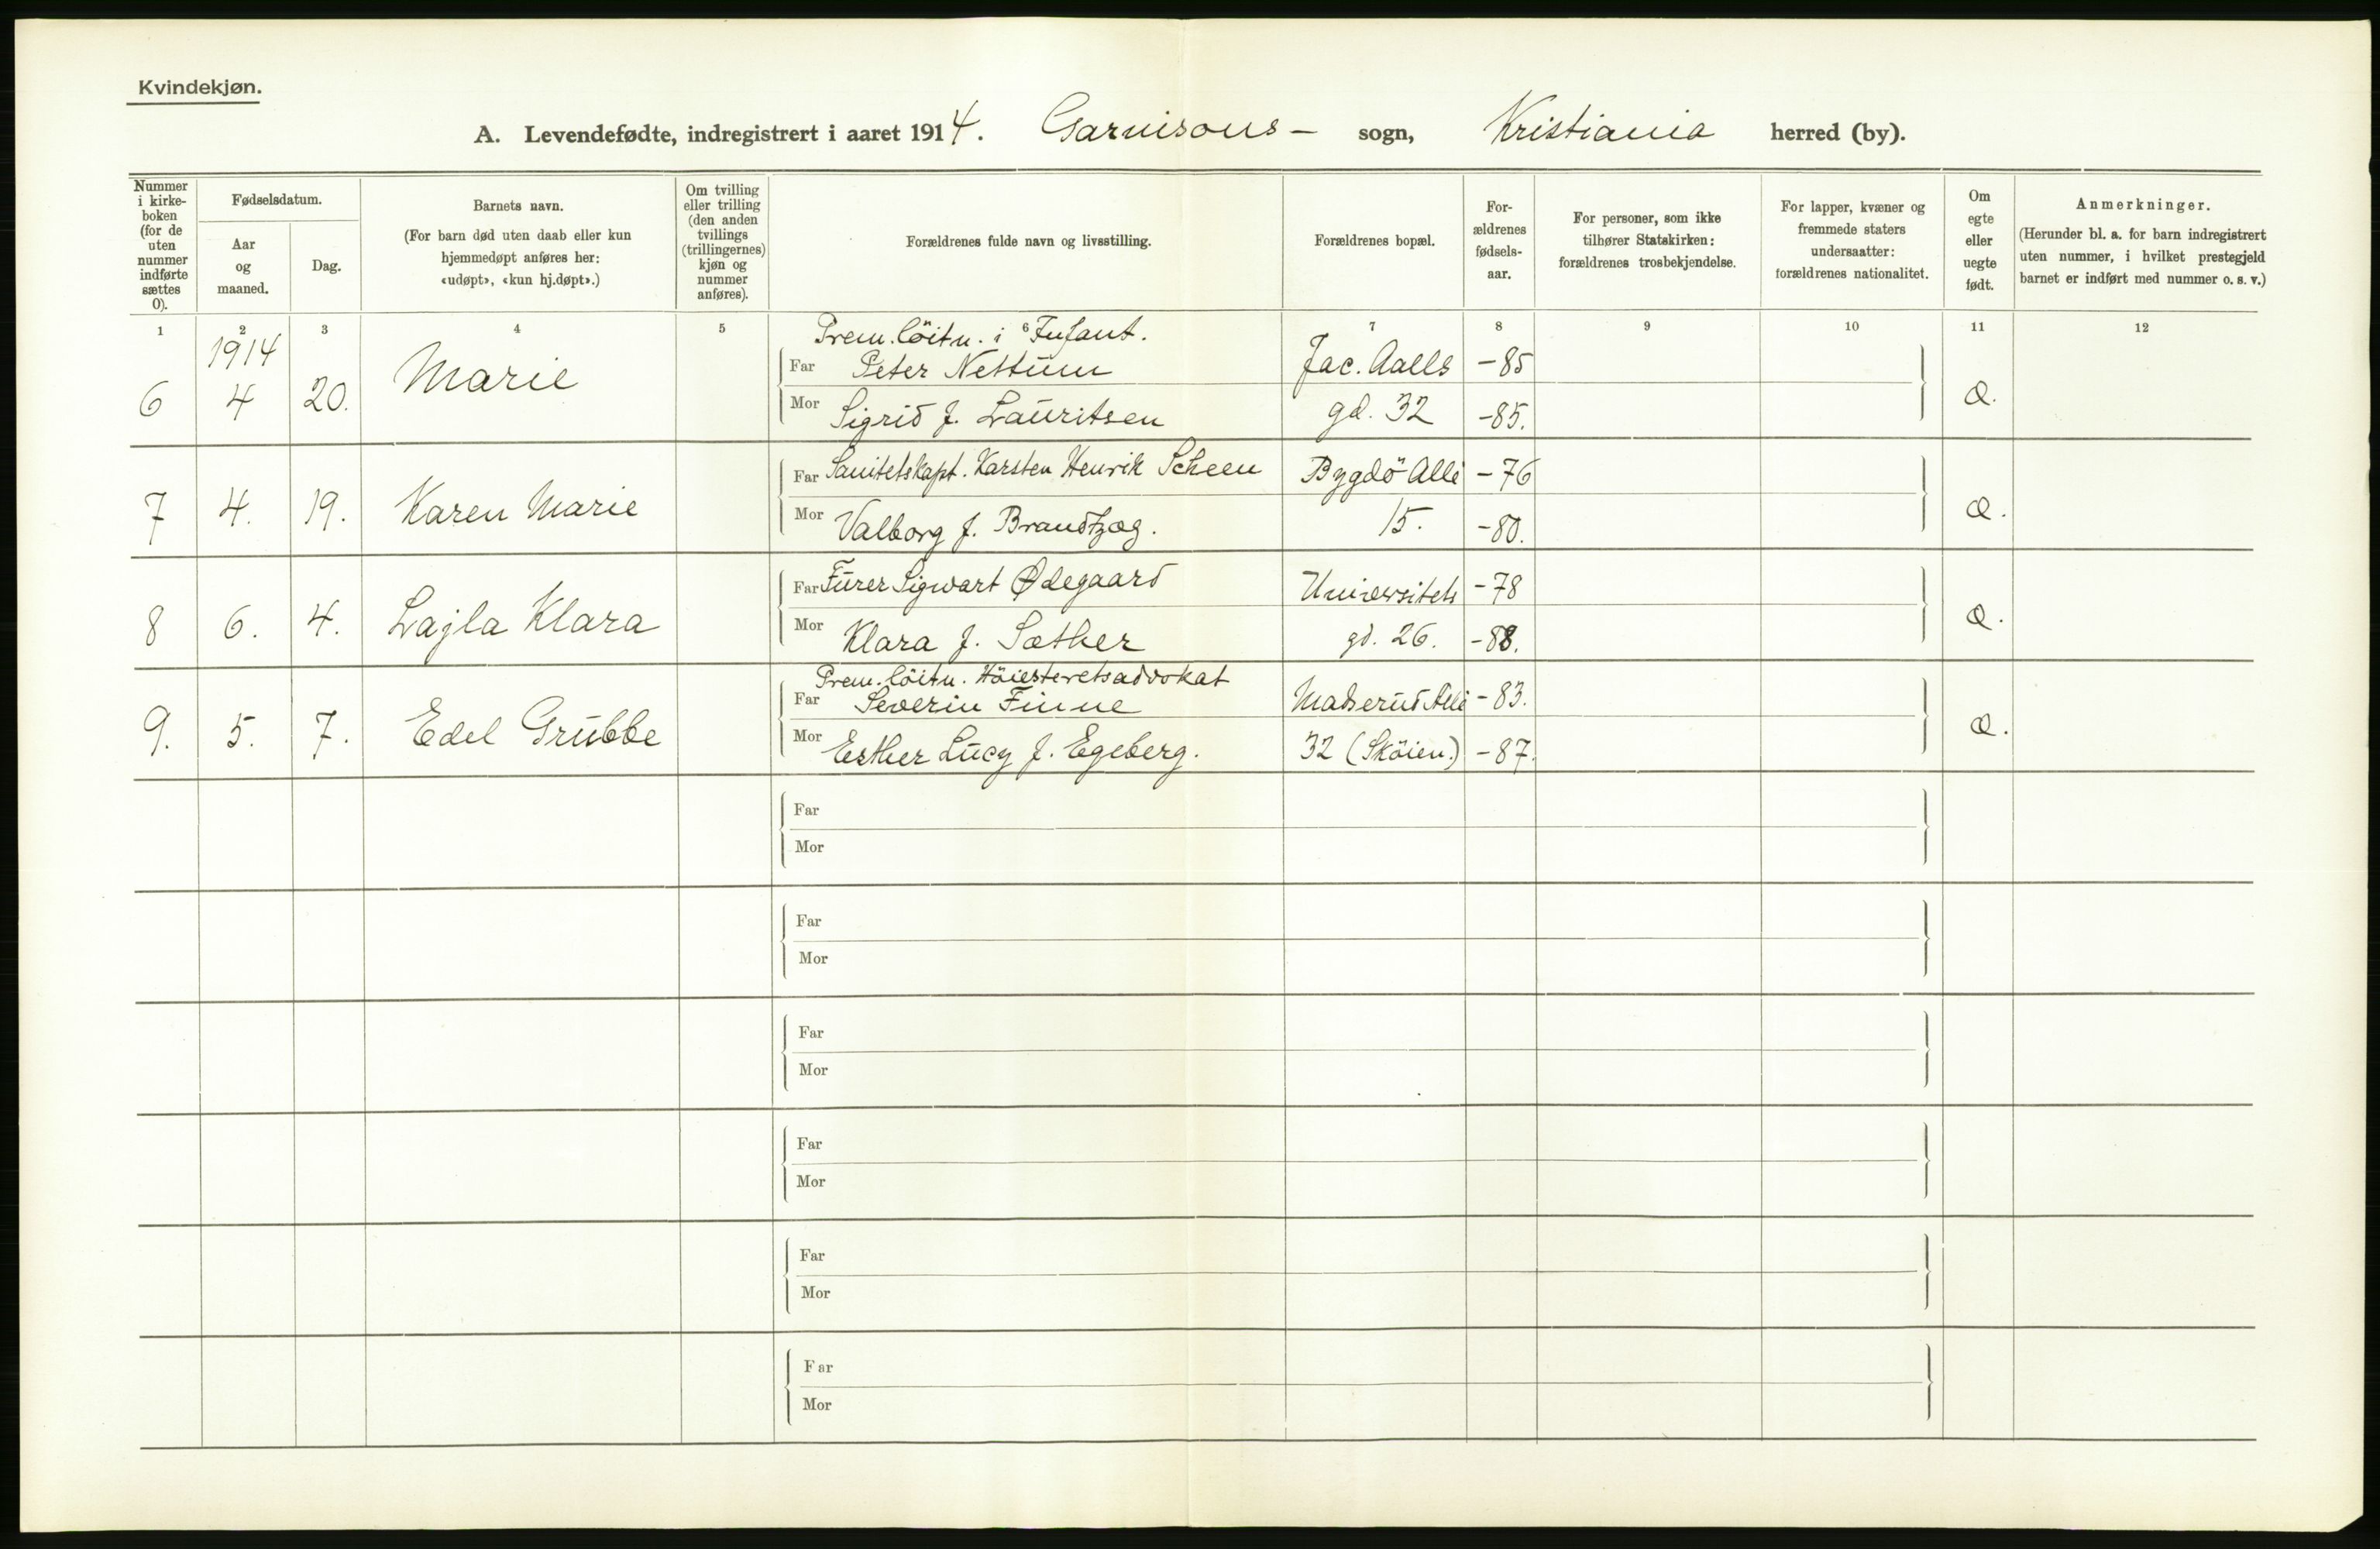 Kvindekjøn.
A. Levendefødte, indregistrert i aaret 1914. Garnisons- sogn, Kristiania herred (by).
Nummer i kirke- boken (for de uten nummer indførte sættes 0).
Fødselsdatum.
Aar og maaned.
Dag.
Barnets navn.
(For barn død uten daab eller kun hjemmedøpt anføres her: «udøpt», «kun hj.døpt».)
Om tvilling eller trilling (den anden tvillings (trillingernes) kjøn og nummer anføres).
Forældrenes fulde navn og livsstilling.
Forældrenes bopæl.
For- ældrenes fødsels- aar.
For personer, som ikke tilhører Statskirken: forældrenes trosbekjendelse.
For lapper, kvæner og fremmede staters undersaatter: forældrenes nationalitet.
Om egte eller uegte født.
Anmerkninger.
(Herunder bl. a. for barn indregistrert uten nummer, i hvilket prestegjeld barnet er indført med nummer o. s. v.)
1 2 3 4 5 6 7 8 9 10 11 12
1914 Prem. löitn. i Infant.
6 4 20. Marie Far Peter Nettum Jac. Aalls -85 Æ.
Mor Sigrid f. Lauritsen gd. 32 -85.
7 4. 19. Karen Marie Far Sanitetskapt. Karsten Henrik Scheen Bygdö Allé -76 Æ.
Mor Valborg f. Brandtzæg. 15. -80.
8 6. 4. Lajla Klara Far Furer Sigwart Ødegaard Universitets -78 Æ.
Mor Klara f. Sæther gd. 26. -88.
Prem. löitn. Höiesteretsadvokat
9. 5. 7. Edel Grubbe Far Severin Finne Madserud Allé -83. Æ.
Mor Esther Lucy f. Egeberg. 32 (Sköien.) -87.
Far
Mor
Far
Mor
Far
Mor
Far
Mor
Far
Mor
Far
Mor